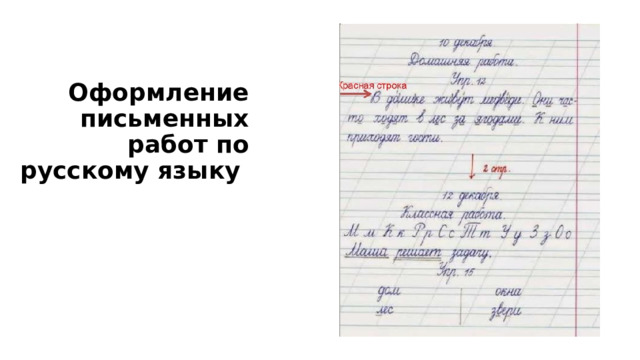 Оформление
письменных
работ по
русскому языку
10 декабря.
Домашняя работа.
Упр. 12
Красная строка
В домике живут медведи. Они час-
то ходят в лес за ягодами. К ним
приходят гости.
2 стр.
12 декабря
Классная работа.
М м К к Р р С с Т т У у З з О о
Маша решает задачу.
Упр. 15
дом окна
лес звери